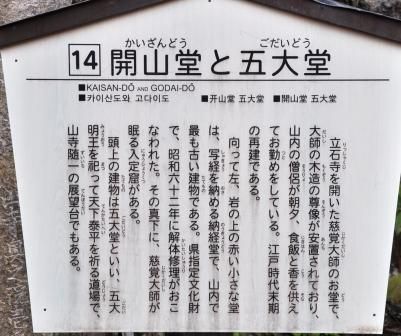 かいざんどう ごだいどう
14 開山堂と五大堂
■KAISAN-DŌ AND GODAI-DŌ
■카이산도와 고다이도 ■开山堂 五大堂 ■開山堂 五大堂
立石寺を開いた慈覚大師のお堂で、
大師の木造の尊像が安置されており、
山内の僧侶が朝夕、食飯と香を供え
てお勤めをしている。江戸時代末期
の再建である。
向って左、岩の上の赤い小さな堂
は、写経を納める納経堂で、山内で
最も古い建物である。県指定文化財
で、昭和六十二年に解体修理がおこ
なわれた。その真下に、慈覚大師が
眠る入定窟がある。
頭上の建物は五大堂といい、五大
明王を祀って天下泰平を祈る道場で、
山寺随一の展望台でもある。